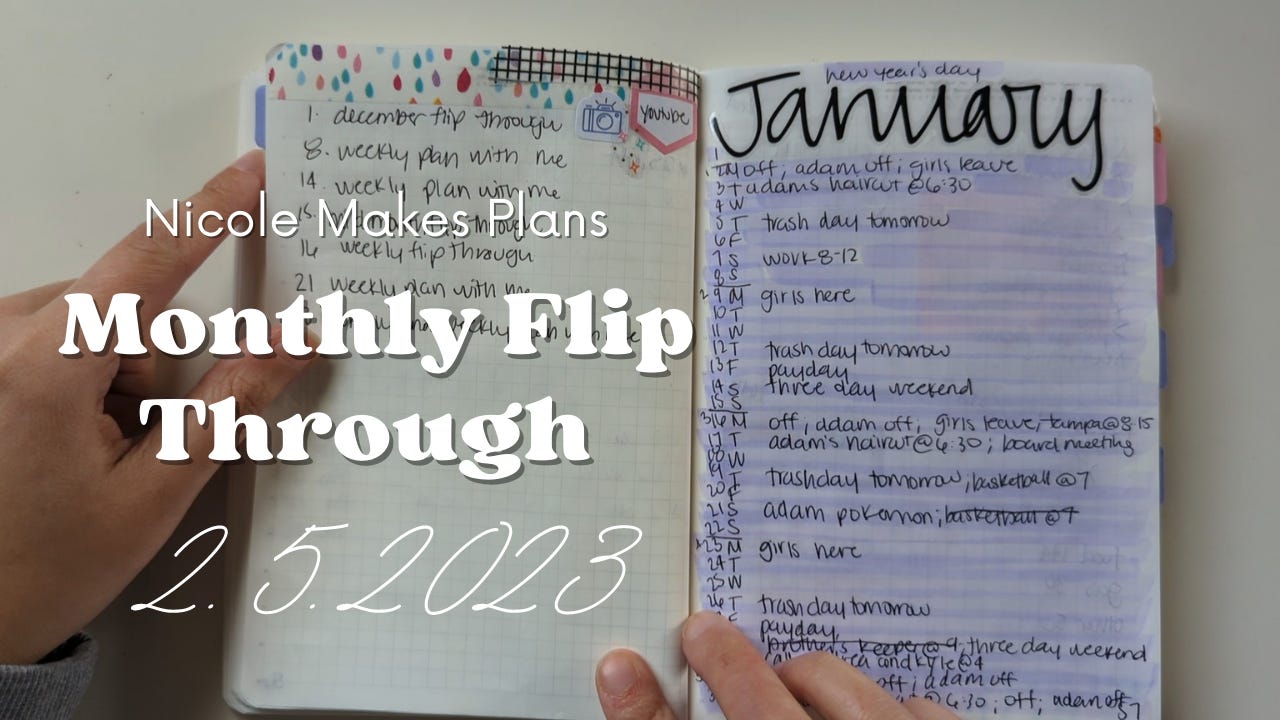 Nicole Makes Plans
Monthly Flip
Through
2.5.2023
1. december flip through
youtube
8. weekly plan with me
14. weekly plan with me
15. through
16 weekly flip through
21 weekly plan with me
weekly plan with
new year's day
January
1
2 M off; adam off; girls leave
3 T adams haircut @6:30
4 W
5 T trash day tomorrow
6 F
7 S work 8-12
8 S
2 9 M girls here
10 T
11 W
12 T trash day tomorrow
13 F payday
14 S three day weekend
15 S
3 16 M off; adam off; girls leave; tampa@8:15
17 T adam's haircut@6:30; board meeting
18 W
19 T trashday tomorrow; basketball @7
20 F
21 S adam pokemon; basketball @7
22 S
23 M girls here
24 T
25 W
26 T trash day tomorrow
F payday
brother's keeper @ 9, three day weekend
and kyle@4
off; adam off
@6:30; off; adam off